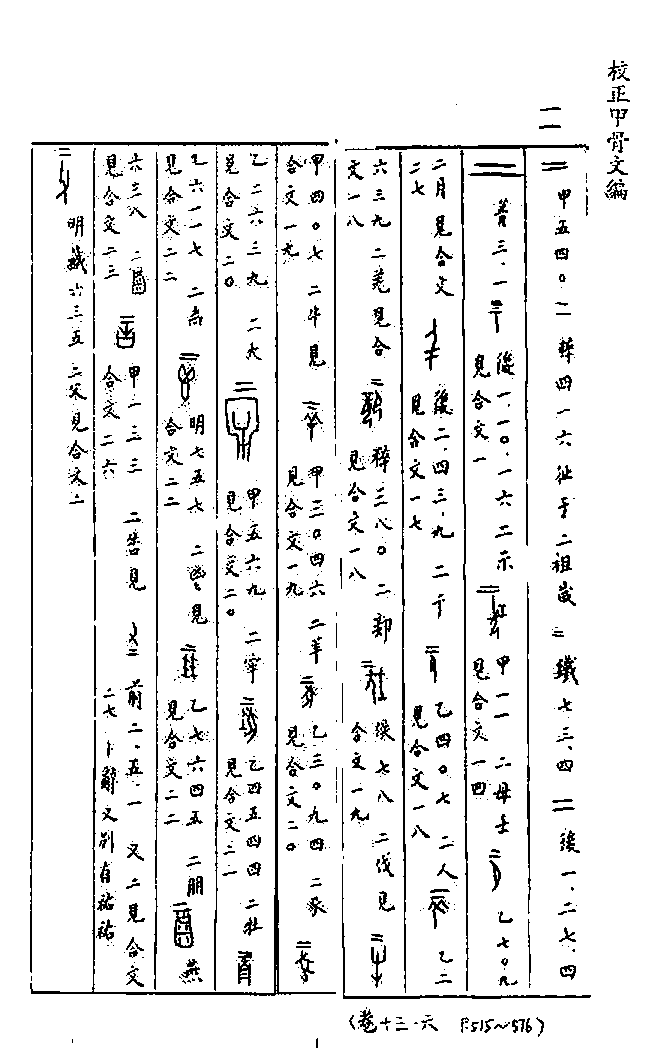 校正甲骨文編
二
二 甲五四〇 二 粹四一六 征于二祖歲 二 鐵七三.四 二 後一.二七.四
二 菁三.一 後一.一〇.一六 二示見合文一 甲一一 二母壬見合文一四 乙七〇九
二月見合文二七 後二.四三.九 二千見合文一七 乙四〇七 二人見合文一八 乙二
六三九 二羌見合文一八 粹三八〇 二卸見合文一八 後七八 二伐見合文一九
甲四〇七 二牛見合文一九 甲三〇四六 二羊見合文一九 乙三〇九四 二豕見合文二〇
乙二六三九 二犬見合文二〇 甲五六九 二牢見合文二〇 乙四五四四 二牡見合文二一
乙六一一七 二告見合文二二 明七五七 二 見合文二二 乙七六四五 二朋見合文二二 燕
六三八 二 見合文二三 甲一一三三 二告見合文二六 前二.五.一 又二見合文二七 卜辭又別有祐祐
明藏六三五 二父見合文二
(卷十三.六 P.515~516)